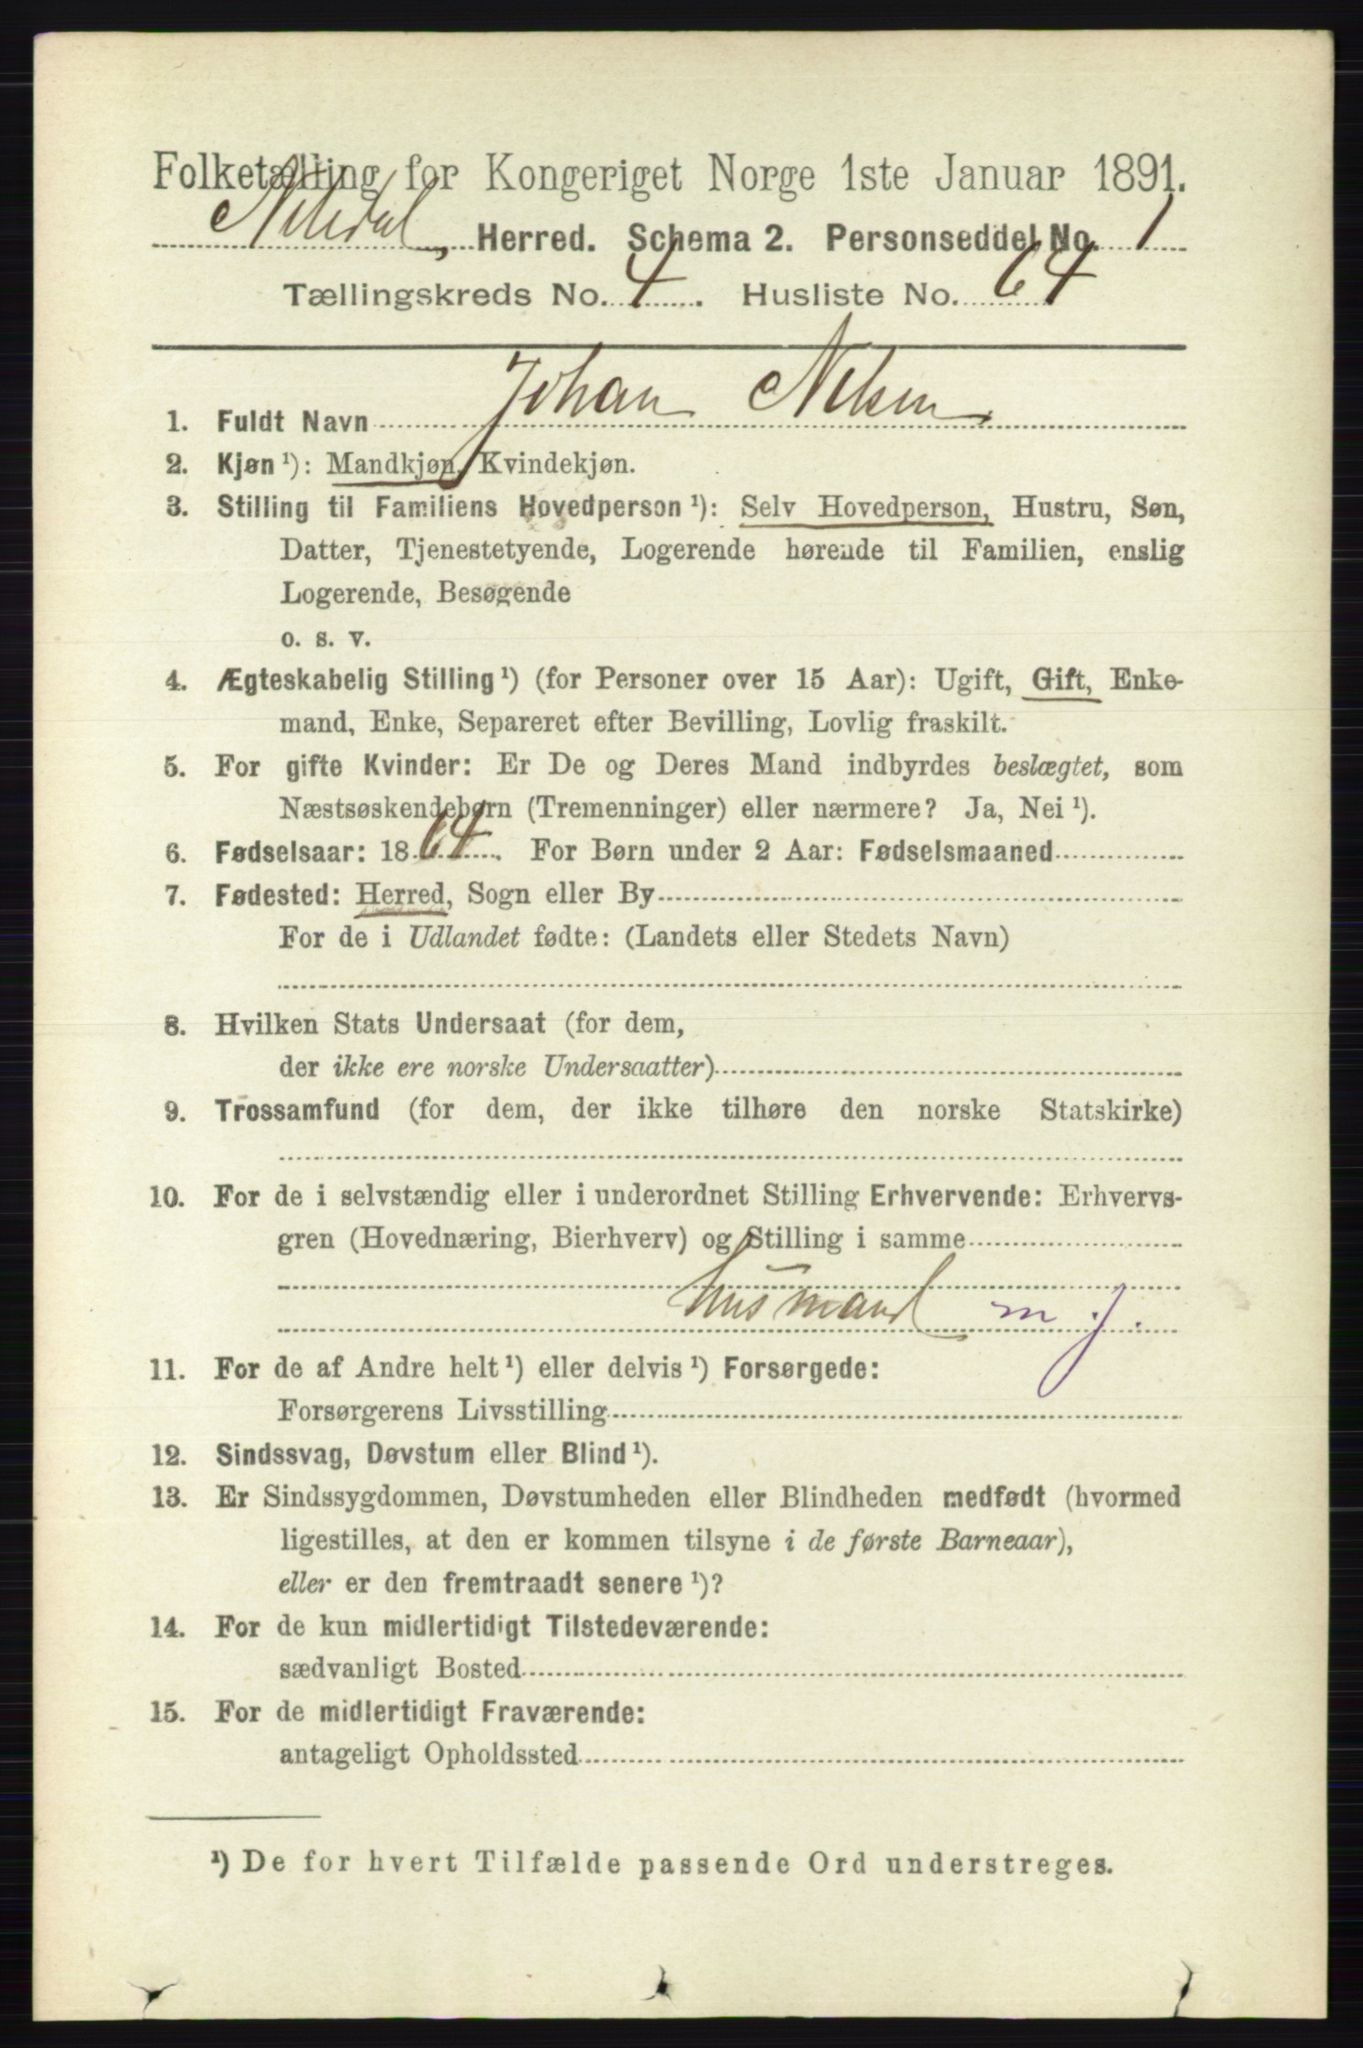 Folketælling for Kongeriget Norge 1ste Januar 1891.
Nitedal, Herred. Schema 2. Personseddel No. 1
Tællingskreds No. 4. Husliste No. 64
1. Fuldt Navn Johan Nilsen
2. Kjøn ¹): Mandkjøn, Kvindekjøn.
3. Stilling til Familiens Hovedperson ¹): Selv Hovedperson, Hustru, Søn,
Datter, Tjenestetyende, Logerende hørende til Familien, enslig
Logerende, Besøgende
o. s. v.
4. Ægteskabelig Stilling ¹) (for Personer over 15 Aar): Ugift, Gift, Enke-
mand, Enke, Separeret efter Bevilling, Lovlig fraskilt.
5. For gifte Kvinder: Er De og Deres Mand indbyrdes beslægtet, som
Næstsøskendebørn (Tremenninger) eller nærmere? Ja, Nei ¹).
6. Fødselsaar: 1864. For Børn under 2 Aar: Fødselsmaaned
7. Fødested: Herred, Sogn eller By
For de i Udlandet fødte: (Landets eller Stedets Navn)
8. Hvilken Stats Undersaat (for dem,
der ikke ere norske Undersaatter)
9. Trossamfund (for dem, der ikke tilhøre den norske Statskirke)
10. For de i selvstændig eller i underordnet Stilling Erhvervende: Erhvervs-
gren (Hovednæring, Bierhverv) og Stilling i samme
husmand m. j.
11. For de af Andre helt ¹) eller delvis ¹) Forsørgede:
Forsørgerens Livsstilling
12. Sindssvag, Døvstum eller Blind ¹).
13. Er Sindssygdommen, Døvstumheden eller Blindheden medfødt (hvormed
ligestilles, at den er kommen tilsyne i de første Barneaar),
eller er den fremtraadt senere ¹)?
14. For de kun midlertidigt Tilstedeværende:
sædvanligt Bosted
15. For de midlertidigt Fraværende:
antageligt Opholdssted
¹) De for hvert Tilfælde passende Ord understreges.